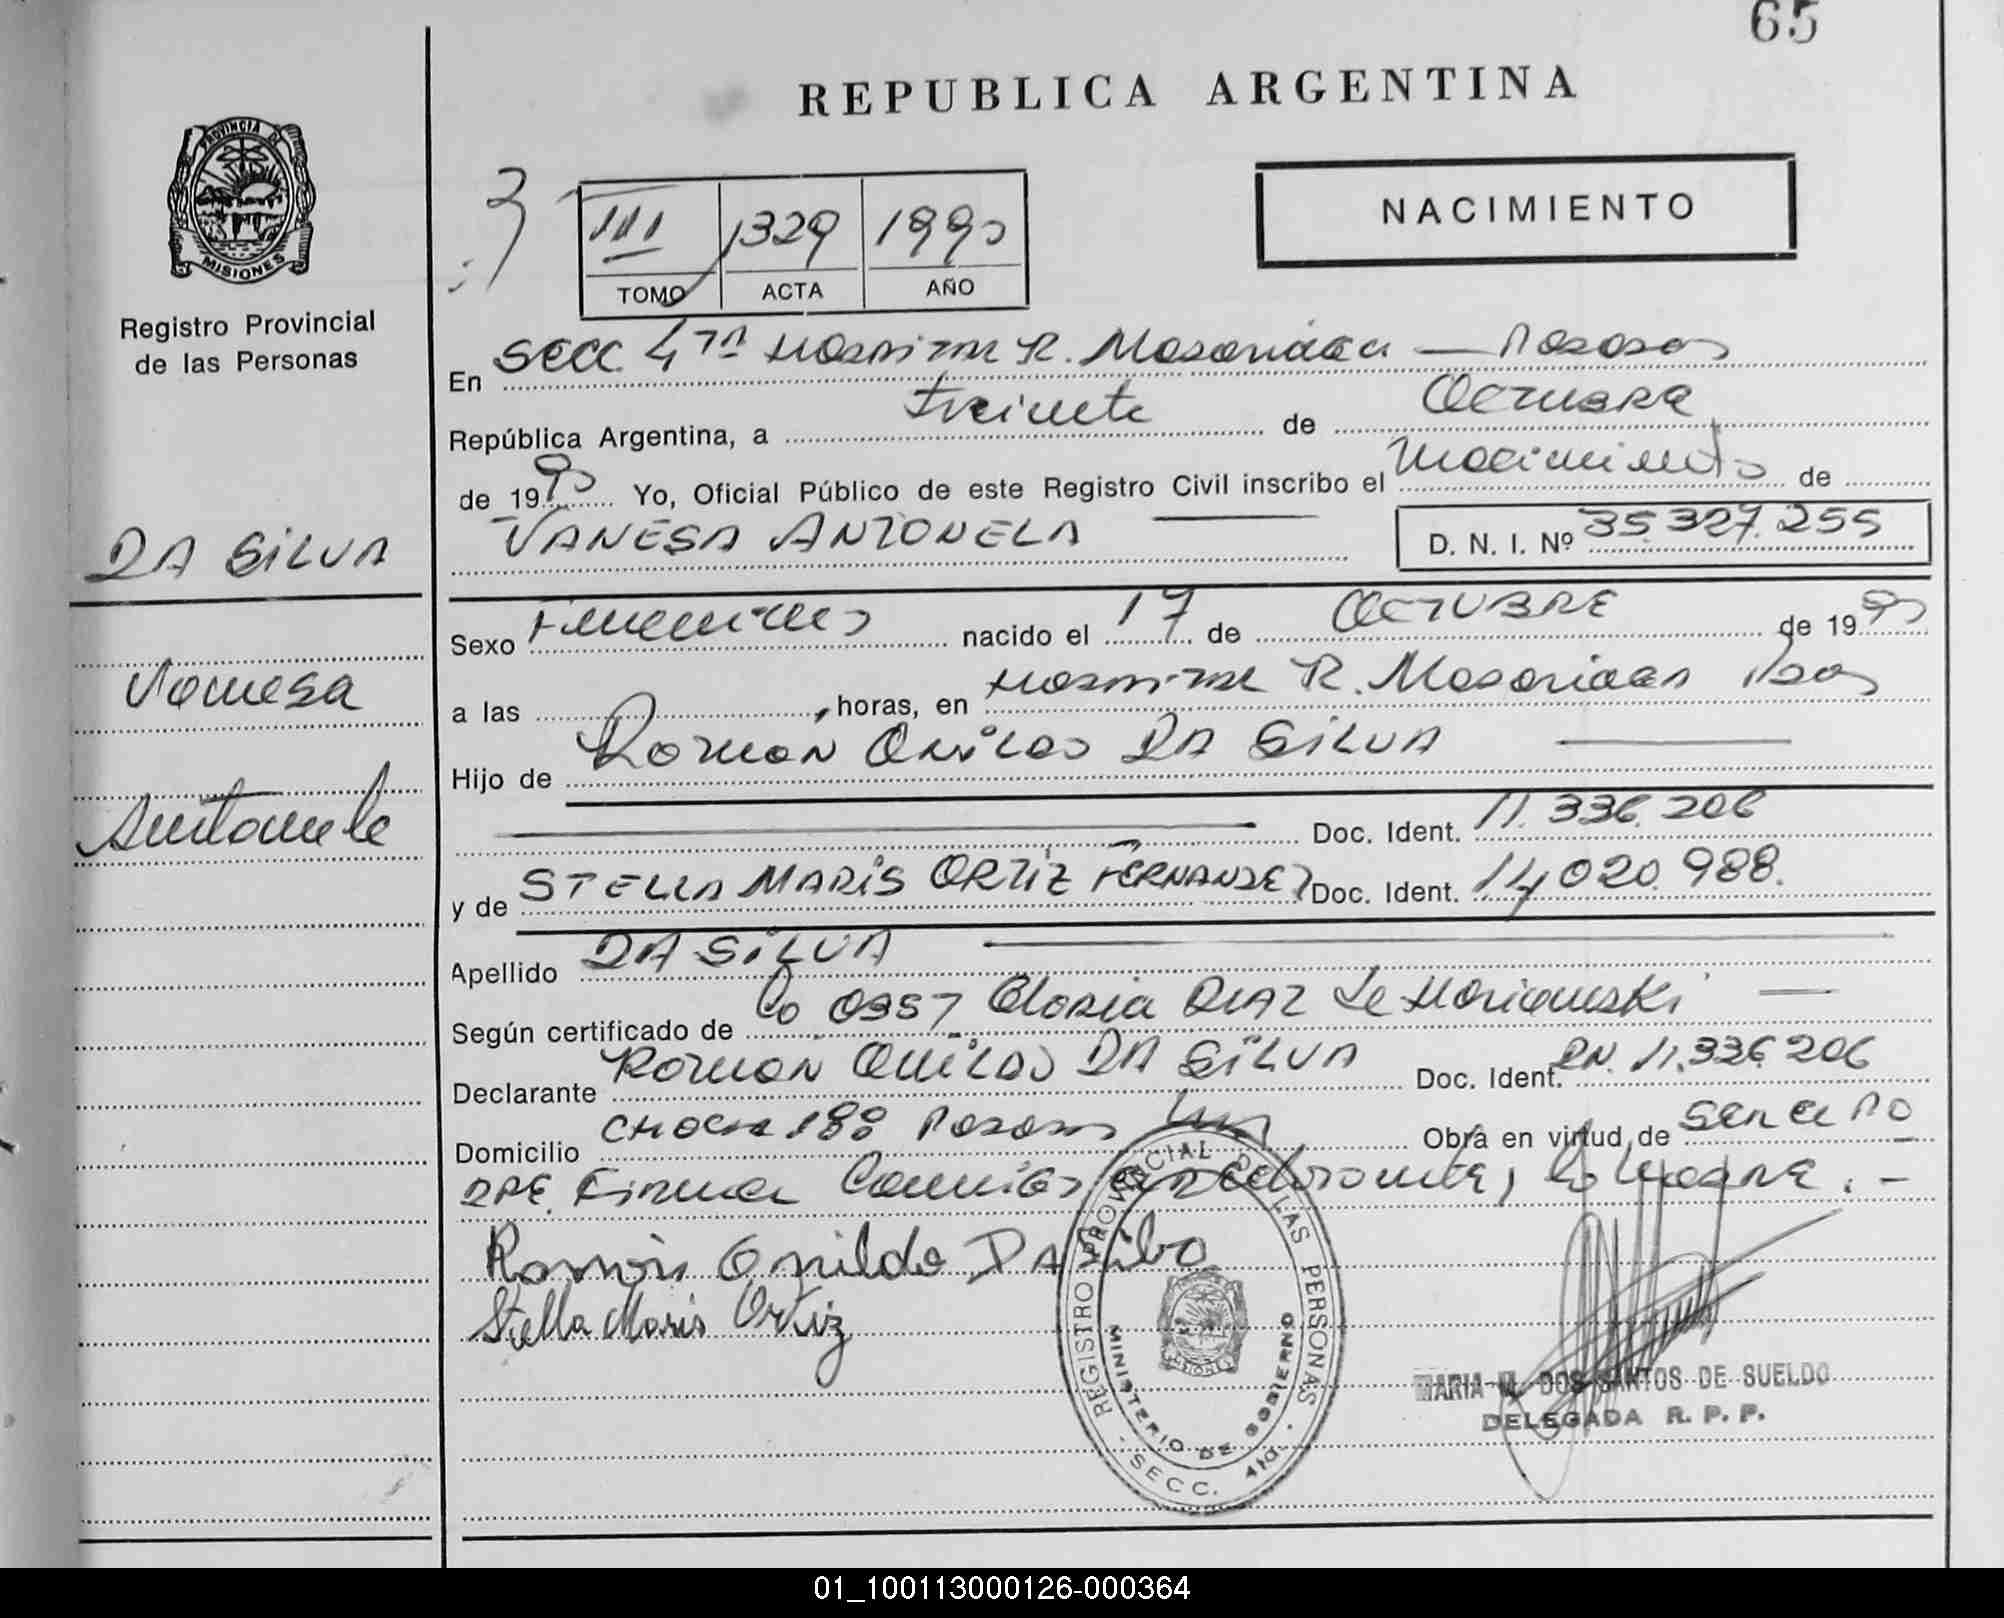 65
REPUBLICA ARGENTINA
PROVINCIA DE
MISIONES
Registro Provincial
de las Personas
NACIMIENTO
3
III 1329 1990
TOMO ACTA AÑO
En SECC 4TA HOSPITAL R. Madariaga — Posadas
República Argentina, a treinta de OCTUBRE
de 1990 Yo, Oficial Público de este Registro Civil inscribo el nacimiento de
VANESA ANTONELA — D. N. I. Nº 35.327.255
DA SILVA
Vanesa
Antonela
Sexo Femenino nacido el 17 de OCTUBRE de 1990
a las , horas, en HOSPITAL R. Madariaga Pdas
Hijo de Ramon Onildo DA SILVA —
— Doc. Ident. 11.336.206
y de STELLA MARIS ORTIZ FERNANDEZ Doc. Ident. 14,020.988.
Apellido DA SILVA —
Según certificado de Lo 0357 Gloria DIAZ de —
Declarante Ramon Onildo DA SILVA Doc. Ident. DN. 11.336.206
Domicilio 180 Posadas Obra en virtud de ser el PA
DRE. Firma Con el declarante, la MADRE. -
Ramón Onildo Da Silva
Stella Maris Ortiz
REGISTRO PROVINCIAL DE LAS PERSONAS
MINISTERIO DE GOBIERNO
MISIONES
- SECC. 4ta. -
MARIA M. DOS SANTOS DE SUELDO
DELEGADA R. P. P.
01_100113000126-000364